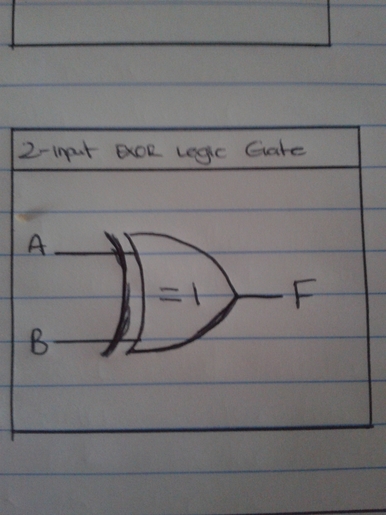 2-input EXOR Logic Gate
A
= 1
F
B